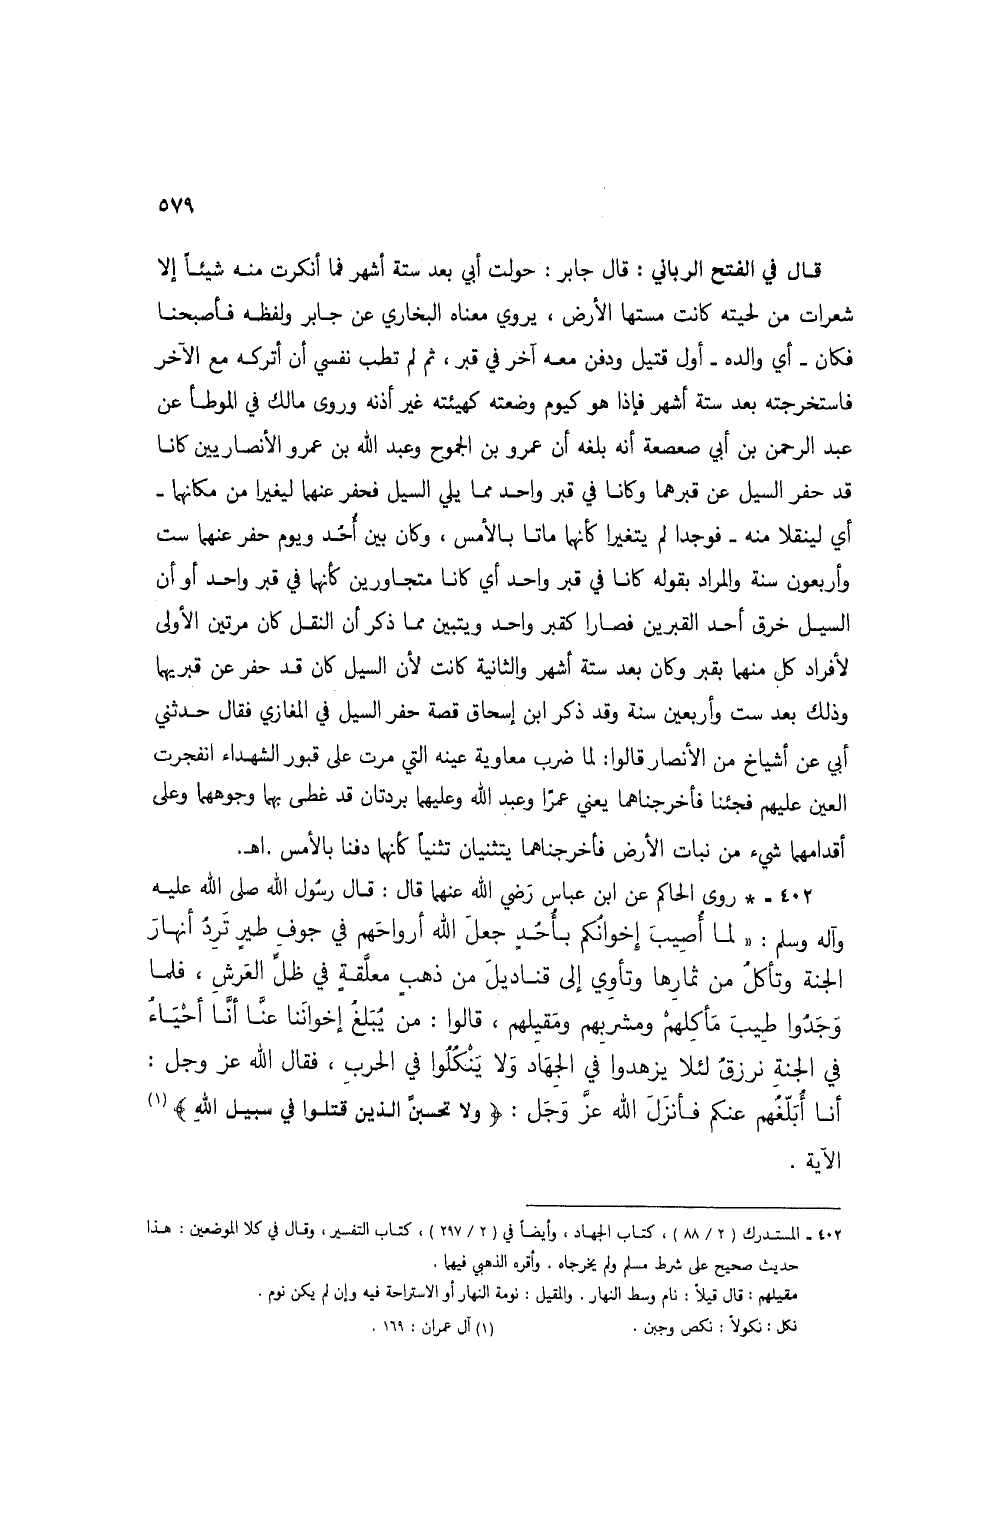 ٥٧٩
قال في الفتح الرباني : قال جابر : حولت أبي بعد ستة أشهر فما أنكرت منه شيئاً إلا
شعرات من لحيته كانت مستها الأرض ، يروي معناه البخاري عن جابر ولفظه فأصبحنا
فكان ـ أي والده ـ أول قتيل ودفن معه آخر في قبر ، ثم لم تطب نفسي أن أتركه مع الآخر
فاستخرجته بعد ستة أشهر فإذا هو كيوم وضعته كهيئته غير أذنه وروى مالك في الموطأ عن
عبد الرحمن بن أبي صعصعة أنه بلغه أن عمرو بن الجموح وعبد الله بن عمرو الأنصاريين كانا
قد حفر السيل عن قبرهما وكانا في قبر واحد مما يلي السيل فحفر عنهما ليغيرا من مكانهما ـ
أي لينقلا منه ـ فوجدا لم يتغيرا كأنهما ماتا بالأمس ، وكان بين أُحُد ويوم حفر عنهما ست
وأربعون سنة والمراد بقوله كانا في قبر واحد أي كانا متجاورين كأنهما في قبر واحد أو أن
السيل خرق أحد القبرين فصارا كقبر واحد ويتبين مما ذكر أن النقل كان مرتين الأولى
لأفراد كل منهما بقبر وكان بعد ستة أشهر والثانية كانت لأن السيل كان قد حفر عن قبريهما
وذلك بعد ست وأربعين سنة وقد ذكر ابن إسحاق قصة حفر السيل في المغازي فقال حدثني
أبي عن أشياخ من الأنصار قالوا: لما ضرب معاوية عينه التي مرت على قبور الشهداء انفجرت
العين عليهم فجئنا فأخرجناهما يعني عمرًا وعبد الله وعليهما بردتان قد غطى بها وجوهها وعلى
أقدامهما شيء من نبات الأرض فأخرجناهما يتثنيان تثنياً كأنهما دفنا بالأمس .اهـ.
٤٠٢ ـ * روى الحاكم عن ابن عباس رَضي الله عنهما قال : قال رسُول الله صلى الله عليه
وآله وسلم : « لما أُصِيبَ إخوانُكم بأُحُدٍ جعلَ الله أرواحَهم في جوفِ طيرٍ تَرِدُ أنهارَ
الجنة وتأكلُ من ثمارها وتأوي إلى قناديلَ من ذهبٍ معلَّقةٍ في ظلِّ العَرشِ ، فلما
وَجَدُوا طيبَ مَأكلِهِمْ ومشربِهم ومَقيلِهم ، قالوا : من يُبَلغُ إخوانَنا عنَّا أنَّا أحْيَاءٌ
في الجنةِ نرزقُ لئلا يزهدوا في الجِهَاد وَلا يَنْكُلُوا في الحربِ ، فقال الله عز وجل :
أنا أُبَلِّغُهم عنكم فأنزَلَ الله عزَّ وَجَل : ﴿ ولا تحسبنَّ الذين قتلوا في سبيل اللهِ ﴾ (١)
الآية .
٤٠٢ ـ المستدرك ( ٢ / ٨٨ ) ، كتاب الجهاد ، وأيضاً في ( ٢ / ٢٩٧ ) ، كتاب التفسير ، وقال في كلا الموضعين : هذا
حديث صحيح على شرط مسلم ولم يخرجاه . وأقره الذهبي فيهما .
مقيلهم : قال قيلاً : نام وسط النهار . والمقيل : نومة النهار أو الاستراحة فيه وإن لم يكن نوم .
نكل : نكولاً : نكص وجبن . (١) آل عمران : ١٦٩ .